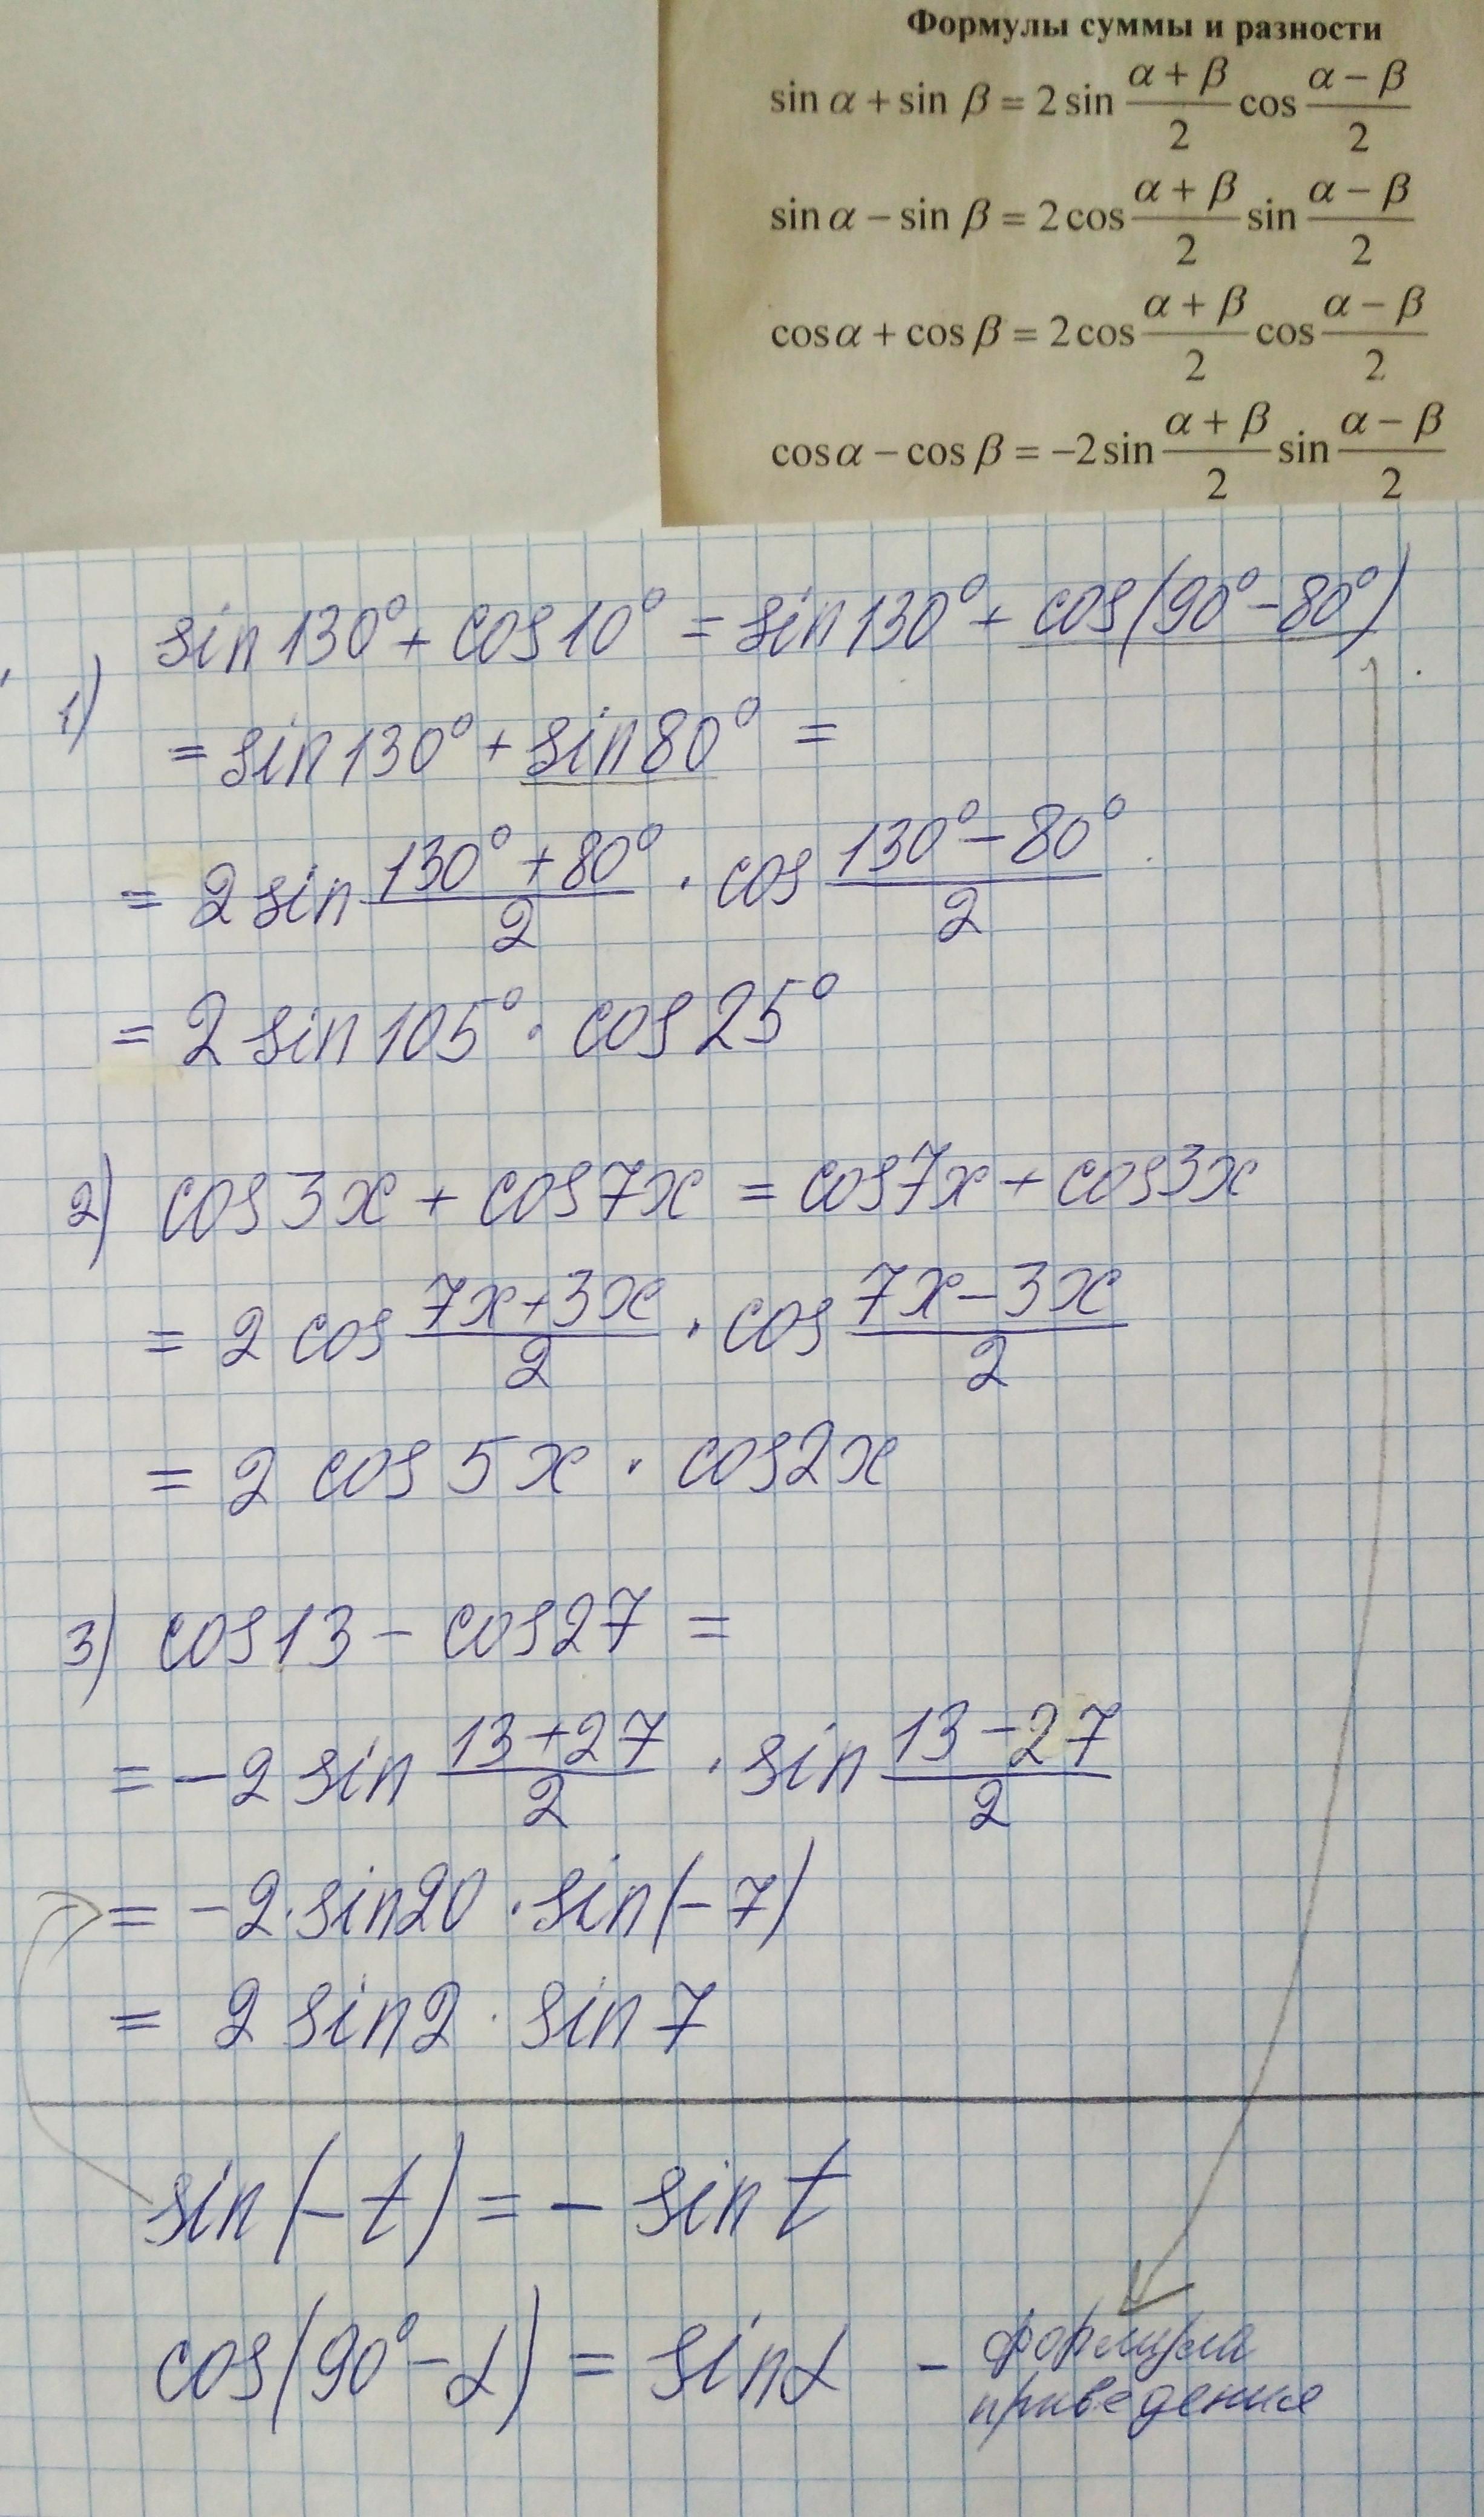 Формулы суммы и разности
sin α + sin β = 2 sin (α + β)/2 cos (α − β)/2
sin α − sin β = 2 cos (α + β)/2 sin (α − β)/2
cos α + cos β = 2 cos (α + β)/2 cos (α − β)/2
cos α − cos β = −2 sin (α + β)/2 sin (α − β)/2
1) sin 130° + cos 10° = sin 130° + cos(90° − 80°)
= sin 130° + sin 80° =
= 2 sin (130° + 80°)/2 · cos (130° − 80°)/2
= 2 sin 105° · cos 25°
2) cos 3x + cos 7x = cos 7x + cos 3x
= 2 cos (7x + 3x)/2 · cos (7x − 3x)/2
= 2 cos 5x · cos 2x
3) cos 13 − cos 27 =
= −2 sin (13 + 27)/2 · sin (13 − 27)/2
= −2 · sin 20 · sin(−7)
= 2 sin 2 · sin 7
sin(−t) = − sin t
cos(90° − α) = sin α − формула
приведения